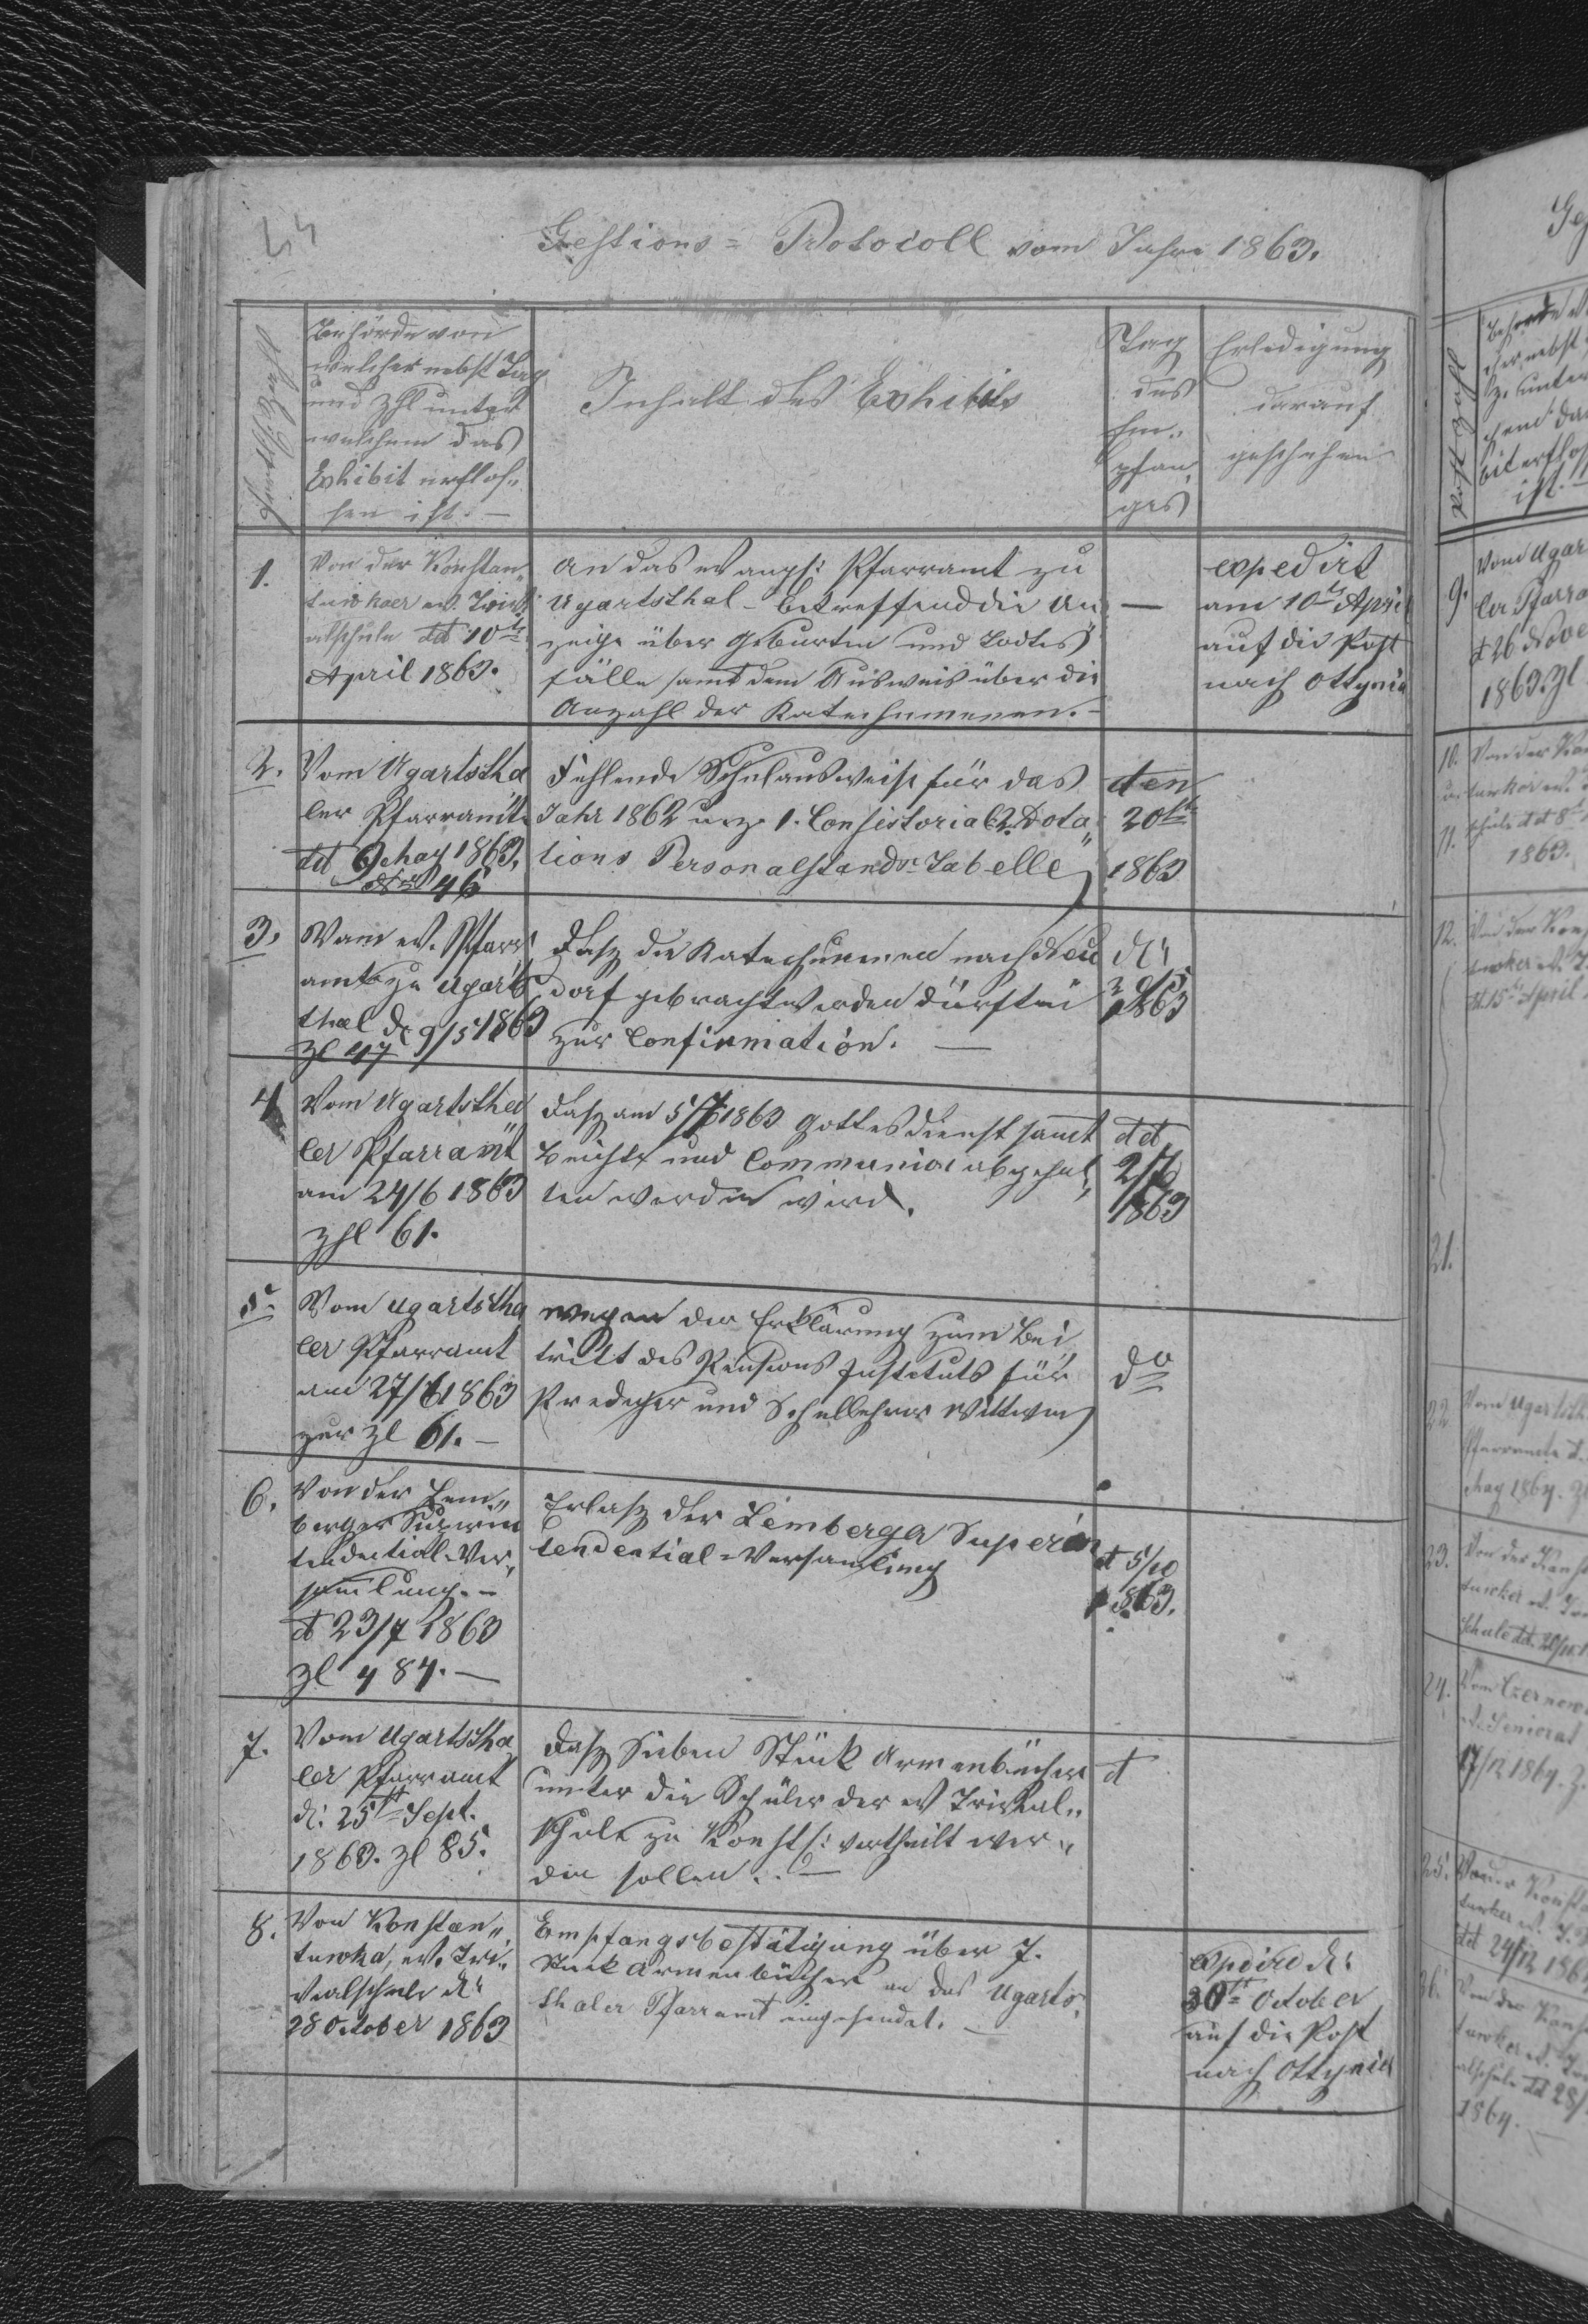 Gestions = Protocoll vom Jahre 1863.
Behörde von
welcher nebst Tag
und Zhl unter
welchem das
Exhibit erflos„
sen ist. —
Inhalt des Exhibits
Tag
des
Em„
pfan„
ges
Erledigung
darauf
geschehen
1.
Von der Konstan„
tuwkaer ev. Trivi„
alschule dd 10te
April 1863.
An das evangl: Pfarramt zu
Ugartsthal - Betreffend die An„
zeige über Geburten und Todtes„
fälle samt dem Ausweis über die
Anzahl der Katechumenen. —
—
expedirt
am 10te April
auf die Post
nach Ottynia
2.
Vom Ugartstha
ler Pfarramte
dd 9 May 1863.
Nr 46
Fehlende Schulausweise für das
Jahr 1862 u. z. 1. Consistorial 2. Dota„
tions Personalstands Tabelle
den
20te
1863
3.
Vom ev. Pfarr
amte zu Ugarts
thal d. 9/5 1863
Zl 47
Dasz die Katechumenen nach Neu
dorf gebracht werden dürften
zur Confirmation. —
d:
1863
4
Vom Ugartstha
ler Pfarramt
am 24/6 1863
Zhl 61.
Dasz am 5/7 1863 Gottesdienst samt
Beichte und Communion abgehal„
ten werden wird.
dd
2/7
1863
5.
Vom Ugartstha
ler Pfarramt
am 27/6 1863
zur Zl 61. —
wegen der Erklärung zum Bei„
tritt des Pensions Instituts für
Prediger und Schullehrer Wittwen
do
6.
Von der Lem„
berger Superin
tendential-Ver„
samlung. —
d 23/7 1863
Zl 484. —
Erlasz der Lemberga Superin
tendential-Versamlung
d 5/10
1863.
7.
Vom Ugartstha
ler Pfarramt
d: 25te Sept.
1863. Zl 85.
Dasz Sieben Stück Armenbücher
unter die Schüler der ev Trivial„
schule zu Konst/: vertheilt wer„
den sollen. —
d
8.
Von Konstan„
tuwka, ev. Tri„
vialschule d:
28 October 1863
Empfangsbestätigung über 7.
Stück Armenbücher an das Ugarts„
thaler Pfarramt eingesendet. —
expedire d:
30te October
auf die Post
nach Ottynia
9.
Vom Ugar
ler Pfarra
d 26 Nove
1863. Zl
10.
Von der Kon
11.
schule dd 8te
1863.
12.
Von der Kons
tuwker ev. T
dd 15te April
21.
22
Vom Ugartsth
Pfarramte
May 1864. Zl
23.
Von der Konst
tuwker ev. Tri
Schule dd.
24.
Vom Czernow
ev. Seniorat
17/12 1864. Z
25.
dd 24/12 186
26.
Von der Konst
alschule dd 28/
1864. —